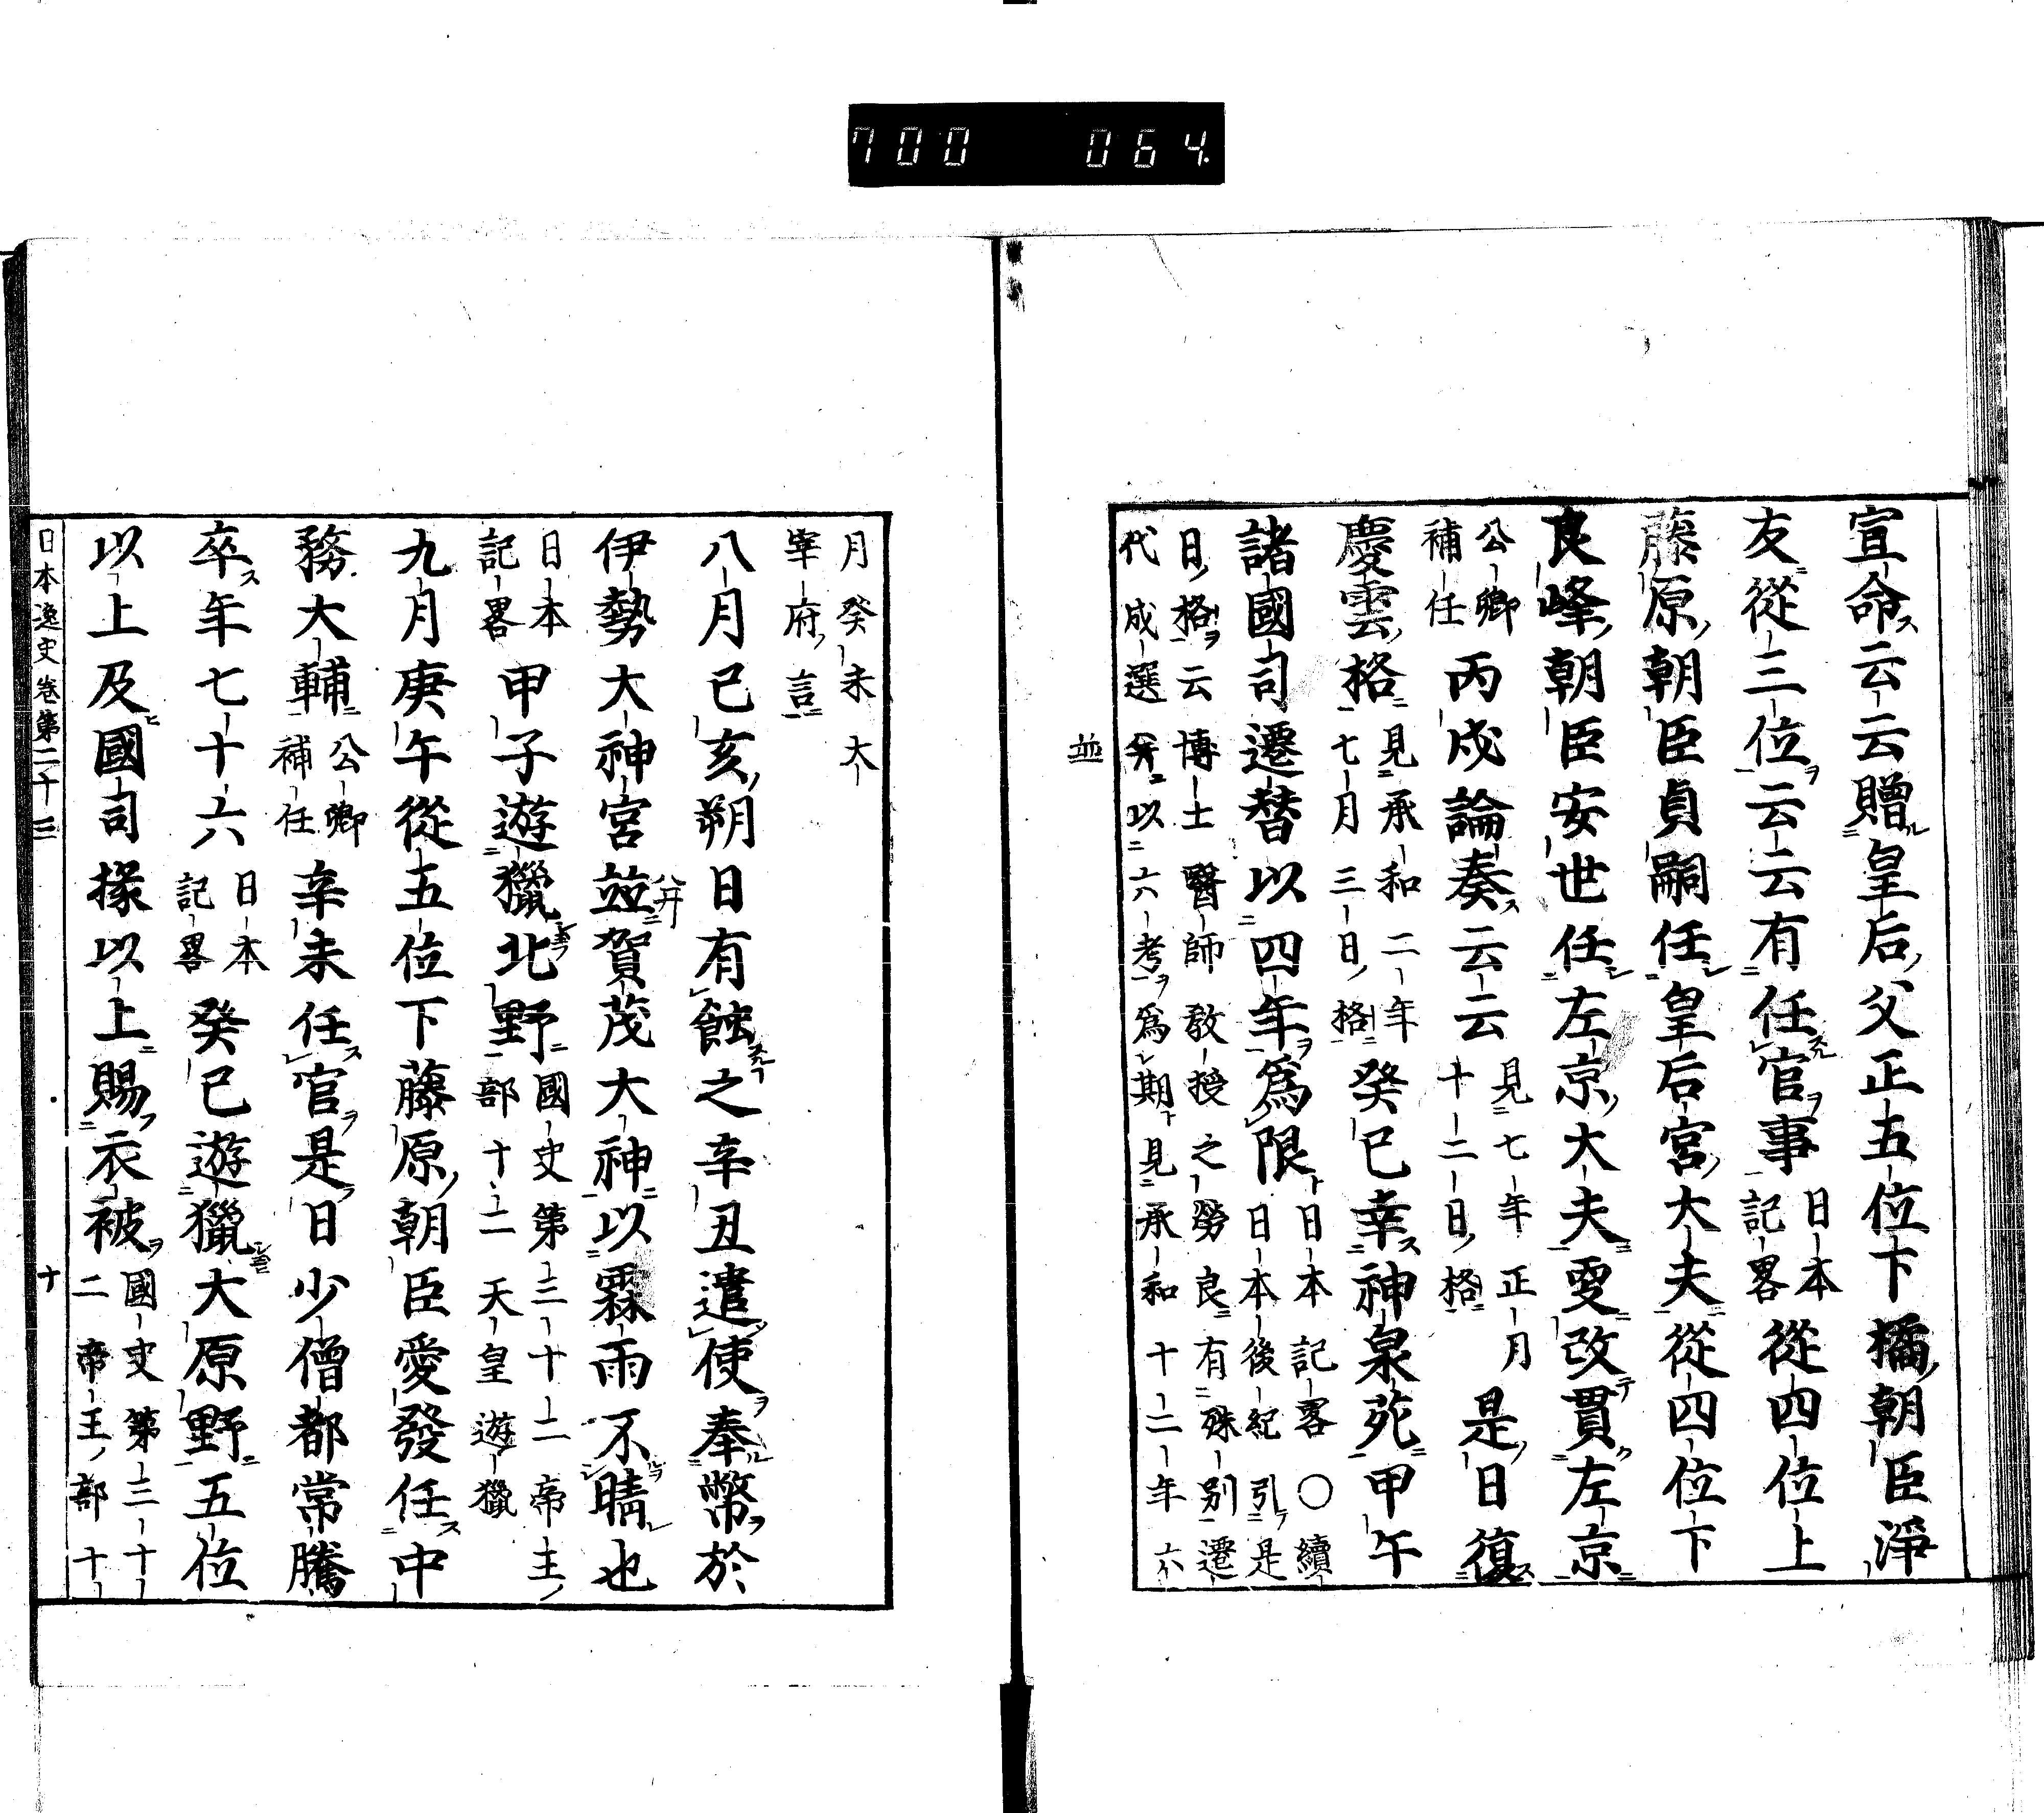 700 064.
宣命云云贈皇后父正五位下橘朝臣淨
友從三位云云有任官事日本記畧從四位上
藤原朝臣貞嗣任皇后宮大夫從四位下
良峰朝臣安世任左京大夫更改貫左京
公卿補任丙戌論奏云云見七年正月十二日格是日復
慶雲格見承和二年七月三日格癸巳幸神泉苑甲午
諸國司遷替以四年爲限日本記畧〇續日本後紀引是
日格云博士醫師教授之勞良有殊別遷代成選并以六考爲期見承和十二年六
並
月癸未大宰府言
八月己亥朔日有蝕之辛丑遣使奉幣於
伊勢大神宮並賀茂大神以霖雨不晴也
日本記畧甲子遊獵北野國史第三十二帝王部十二天皇遊獵
九月庚午從五位下藤原朝臣愛發任中
務大輔公卿補任辛未任官是日少僧都常騰
卒年七十六日本記畧癸巳遊獵大原野五位
以上及國司掾以上賜衣被國史第三十二帝王部十
日本逸史卷第二十三 十